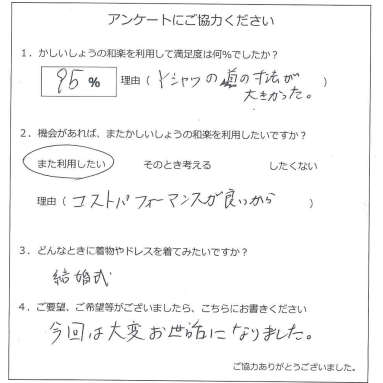 アンケートにご協力ください
1．かしいしょうの和楽を利用して満足度は何％でしたか？
95 % 理由（ Yシャツの首の寸法が
大きかった。 ）
2．機会があれば、またかしいしょうの和楽を利用したいですか？
また利用したい そのとき考える したくない
理由（ コストパフォーマンスが良いから ）
3．どんなときに着物やドレスを着てみたいですか？
結婚式
4．ご要望、ご希望等がございましたら、こちらにお書きください
今回は大変お世話になりました。
ご協力ありがとうございました。